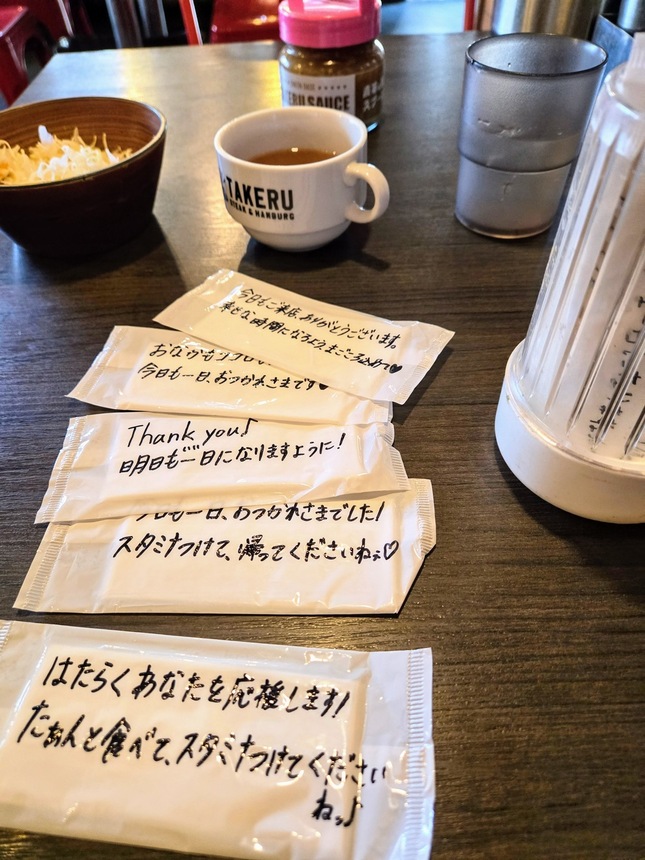 ERUSAUCE
TAKERU
STEAK & HAMBURG
今日もご来店、ありがとうございます。
幸せな時間になるよう、まごころ込めて♥
今日も一日、おつかれさまです♥
Thank you♪
明日も一日になりますように!
今日も一日、おつかれさまでした!
スタミナつけて、帰ってくださいねぇ♡
はたらくあなたを応援します!
たぁんと食べて、スタミナつけてください
ねッ♪